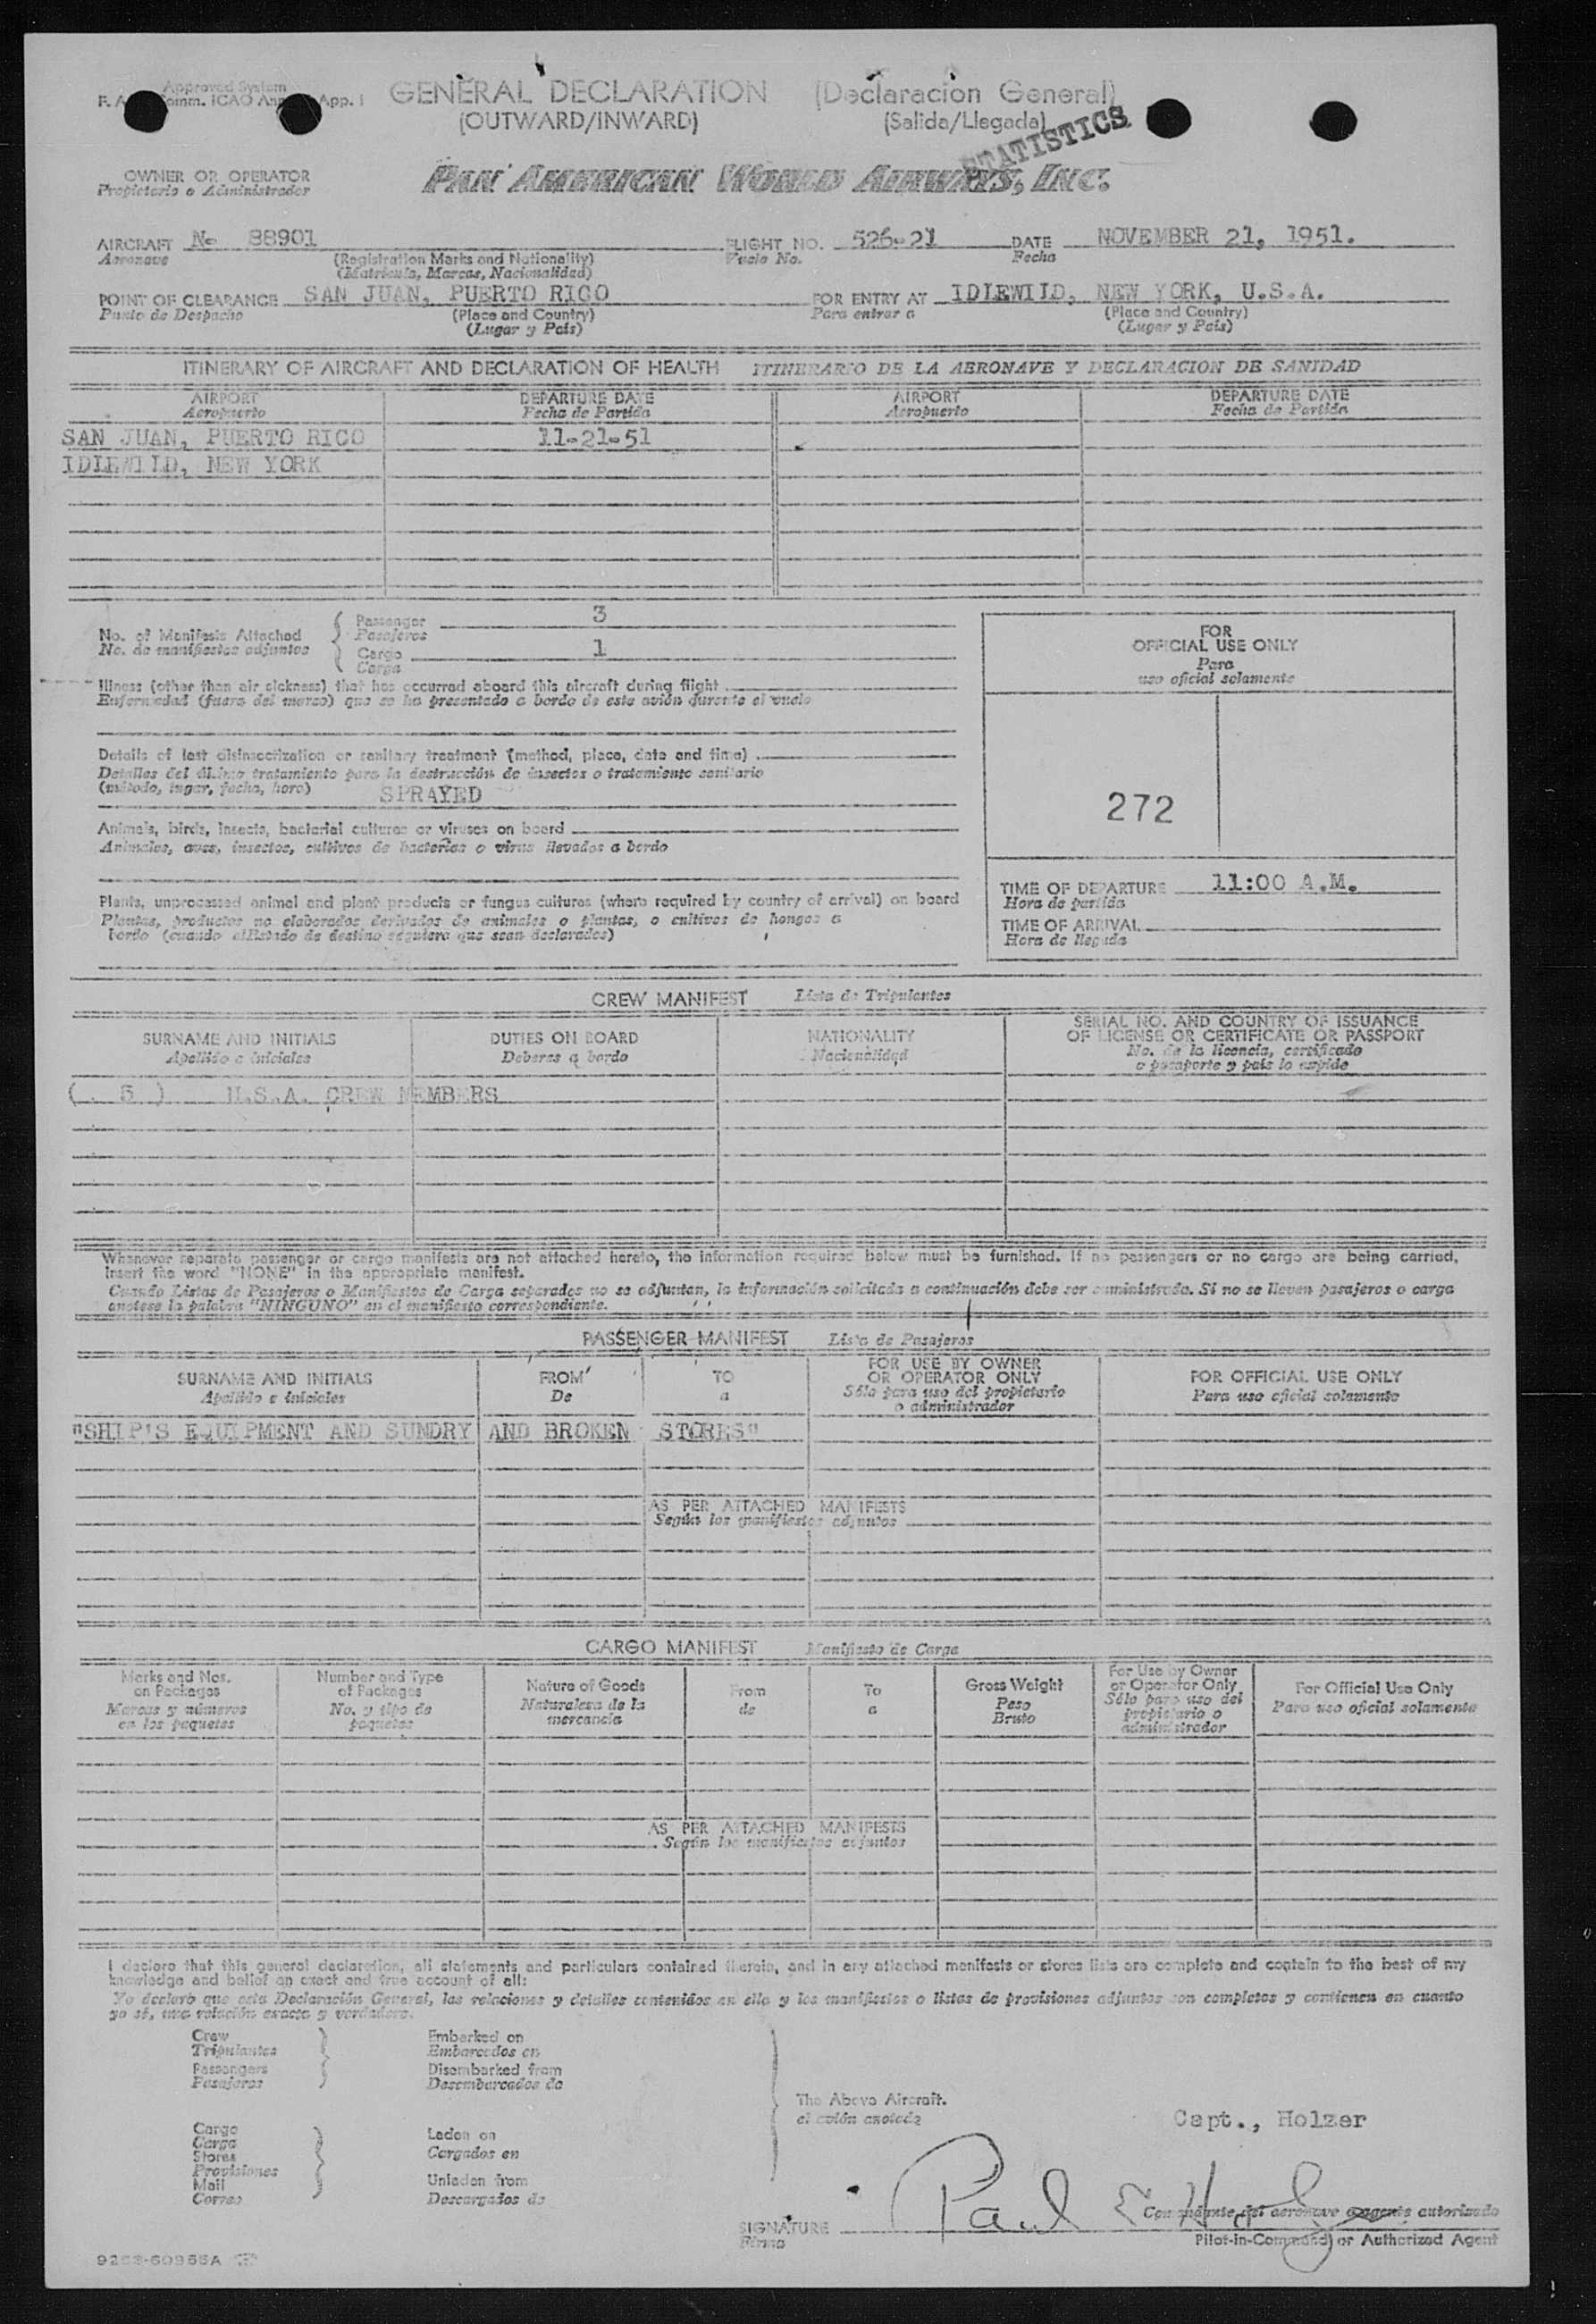 Approved System
GENERAL DECLARATION (Declaracion General)
(OUTWARD/INWARD) (Salida/Llegada)
STATISTICS
OWNER OR OPERATOR
Propietario o Administrador
PAN AMERICAN WORLD AIRWAYS, INC.
AIRCRAFT No 88901 FLIGHT NO. 526-21 DATE NOVEMBER 21, 1951.
Aeronave (Registration Marks and Nationality) Vuelo No. Fecha
(Matricula, Marcas, Nacionalidad)
POINT OF CLEARANCE SAN JUAN, PUERTO RICO FOR ENTRY AT IDLEWILD, NEW YORK, U.S.A.
Punto de Despacho (Place and Country) Para entrar a (Place and Country)
(Lugar y Pais) (Lugar y Pais)
ITINERARY OF AIRCRAFT AND DECLARATION OF HEALTH ITINERARIO DE LA AERONAVE Y DECLARACION DE SANIDAD
AIRPORT DEPARTURE DATE AIRPORT DEPARTURE DATE
Aeropuerto Fecha de Partida Aeropuerto Fecha de Partida
SAN JUAN, PUERTO RICO 11-21-51
IDLEWILD, NEW YORK
No. of Manifests Attached Passenger 3
No. de manifiestos adjuntos Pasajeros
Cargo 1
Carga
FOR
OFFICIAL USE ONLY
Para
uso oficial solamente
Illness (other than air sickness) that has occurred aboard this aircraft during flight
Enfermedad (fuera del mareo) que se ha presentado a bordo de este avión durante el vuelo
Details of last disinsectization or sanitary treatment (method, place, date and time)
Detalles del último tratamiento para la destrucción de insectos o tratamiento sanitario
(método, lugar, fecha, hora) SPRAYED
272
Animals, birds, insects, bacterial cultures or viruses on board
Animales, aves, insectos, cultivos de bacterias o virus llevados a bordo
Plants, unprocessed animal and plant products or fungus cultures (where required by country of arrival) on board
Plantas, productos no elaborados derivados de animales o plantas, o cultivos de hongos a
bordo (cuando el Estado de destino requiera que sean declarados)
TIME OF DEPARTURE 11:00 A.M.
Hora de partida
TIME OF ARRIVAL
Hora de llegada
CREW MANIFEST Lista de Tripulantes
SURNAME AND INITIALS DUTIES ON BOARD NATIONALITY SERIAL NO. AND COUNTRY OF ISSUANCE
OF LICENSE OR CERTIFICATE OR PASSPORT
Apellido e iniciales Deberes a bordo Nacionalidad No. de la licencia, certificado
o pasaporte y pais lo expide
( 5 ) U.S.A. CREW MEMBERS
Whenever separate passenger or cargo manifests are not attached hereto, the information required below must be furnished. If no passengers or no cargo are being carried,
insert the word "NONE" in the appropriate manifest.
Cuando Listas de Pasajeros o Manifiestos de Carga separados no se adjuntan, la información solicitada a continuación debe ser suministrada. Si no se llevan pasajeros o carga
anotese la palabra "NINGUNO" en el manifiesto correspondiente.
PASSENGER MANIFEST Lista de Pasajeros
SURNAME AND INITIALS FROM TO FOR USE BY OWNER
OR OPERATOR ONLY FOR OFFICIAL USE ONLY
Apellido e iniciales De a Sólo para uso del propietario
o administrador Para uso oficial solamente
"SHIP'S EQUIPMENT AND SUNDRY AND BROKEN STORES"
AS PER ATTACHED MANIFESTS
Según los manifiestos adjuntos
CARGO MANIFEST Manifiesto de Carga
Marks and Nos.
on Packages
Marcas y números
en los paquetes
Number and Type
of Packages
No. y tipo de
paquetes
Nature of Goods
Naturaleza de la
mercancia
From
de
To
a
Gross Weight
Peso
Bruto
For Use by Owner
or Operator Only
Sólo para uso del
propietario o
administrador
For Official Use Only
Para uso oficial solamente
AS PER ATTACHED MANIFESTS
Según los manifiestos adjuntos
I declare that this general declaration, all statements and particulars contained therein, and in any attached manifests or stores lists are complete and contain to the best of my
knowledge and belief an exact and true account of all:
Yo declaro que esta Declaración General, las relaciones y detalles contenidos en ella y los manifiestos o listas de provisiones adjuntas son completos y contienen en cuanto
yo sé, una relación exacta y verdadera.
Crew
Tripulantes
Passengers
Pasajeros
Embarked on
Embarcados en
Disembarked from
Desembarcados de
The Above Aircraft.
el avión anotado
Cargo
Carga
Stores
Provisiones
Mail
Correo
Laden on
Cargados en
Unladen from
Descargados de
Capt., Holzer
SIGNATURE Paul E Holzer
Firma
Comandante del aeronave o agente autorizado
Pilot-in-Command) or Authorized Agent